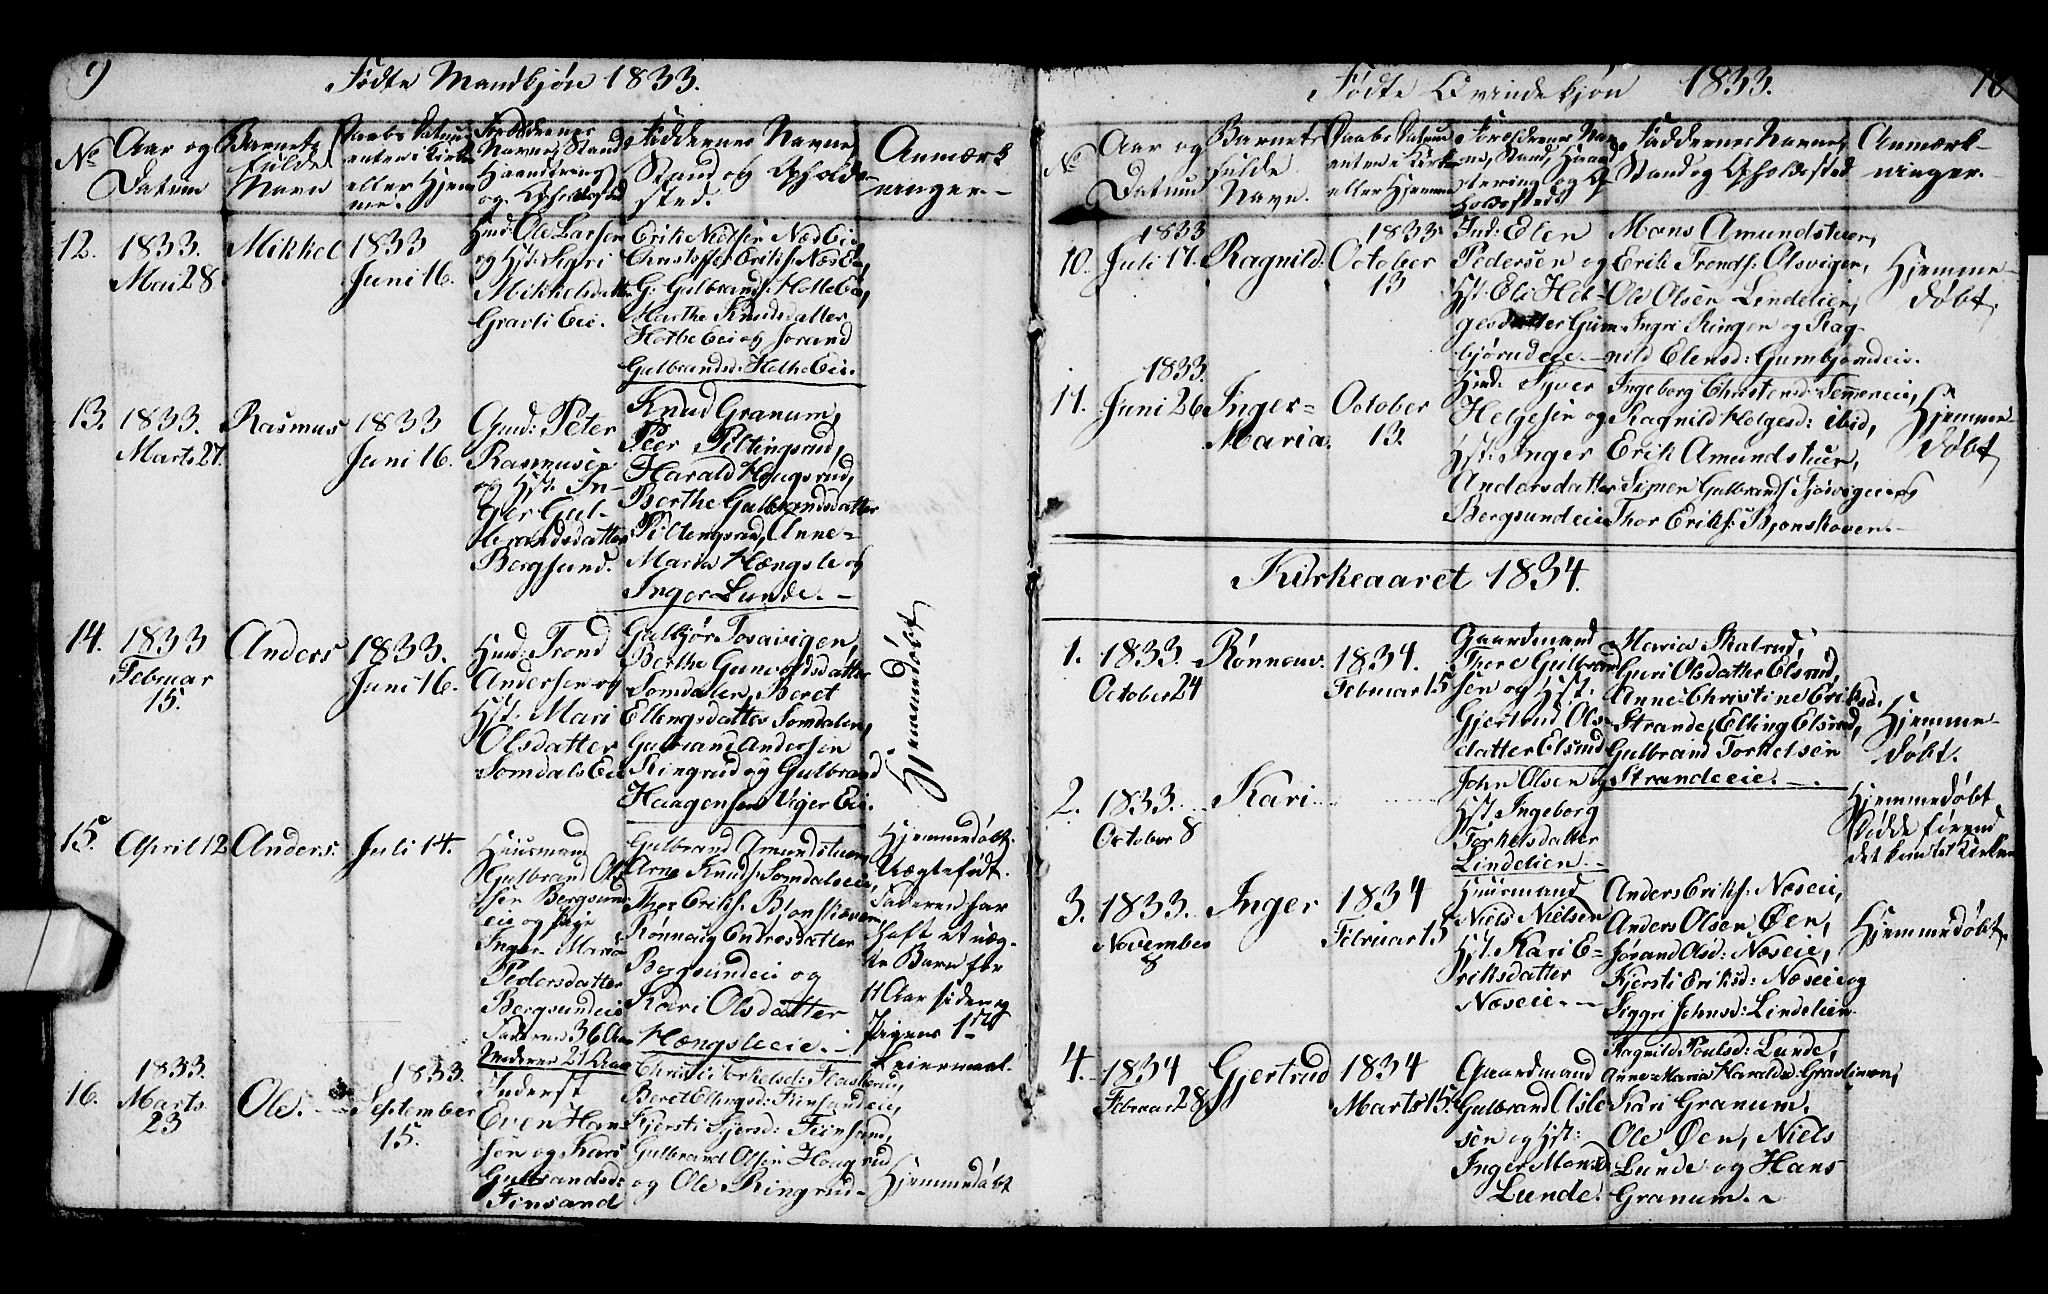 9
Fødte Mandkjøn 1833.
No
Aar og
Datum
Barnets
fulde
Navn
Daabs Datum
enten i Kirke
eller Hjem
me.
Forældrenes
Navne, Stand
Haandtering
og Opholdssted
Faddernes Navne
Stand og Opholds-
sted.
Anmærk
ninger.-
12.
1833.
Mai 28
Mikkel
1833
Juni 16.
Huusm: Ole Larsen
og Hst: Sigri
Mikkelsdatter
Grarli Eie.
Erik Nielsen Næs Eie
Christoffer Eriks: Næs Eie,
G: Gulbrands: Holte Eie,
Marthe Knudsdatter
Holthe Eie og Jorand
Gulbrandsd: Holthe Eie.
13.
1833.
Marts 27.
Rasmus
1833
Juni 16.
Gmd: Peter
Rasmusen
og Hst. In-
ger Gul-
brandsdatter
Bergsund.
Knud Granum,
Peer Piltingsrud,
Harald Hougsrud,
Berthe Gulbrandsdatter
Piltengsrud, Anne-
Maria Hængsle og
Inger Lunde. -
14.
1833
Februar
15.
Anders
1833.
Juni 16.
Huusm: Trond
Andersen og
Hst. Mari
Olsdatter
Somdals Eie
Gulbjør Tosavigen,
Berthe Gunvoldsdatter
Somdalen, Beret
Ellengsdatter Somdalen,
Gulbrand Andersen
Ringrud og Gulbrand
Haagensen Viger Eie.
Hjemmedøbt
15.
April 12
Anders.
Juli 14.
Huusmand
Gulbrand Ol-
sen Bergsund
eie og Pige
Inger Maria
Pedersdatter
Bergsundeie
Faderen 36 Aar
Moderen 21 Aar
Gulbrand Amundstuen,
Arne Knuds: Somdalseie,
Thor Eriks. Bjonskoven,
Rønnaug Endresdatter
Bergsundeie og
Kari Olsdatter
Hængsleeie. -
Hjemmedøbt.
Uægtefødt.
Faderen har
haft et uæg-
te Barn for
11 Aar siden og
Pigens 1ste
Leiermaal.
16.
1833.
Marts
23
Ole. -
1833.
September
15.
Inderst
Even Han
sen og Kari
Gulbrandsd:
Finsand
Christi Torkelsd:
Beret Ellingsd: Finsandeie,
Kjersti Sjersd: Finsand,
Gulbrand Olsen Hougsrud
og Ole Ringrud-
Hjemmedøbt
10
Fødte Qvindekjøn 1833.
No
Aar og
Datum
Barnets
fulde
Navn.
Daabs Datum
enten i Kirke
eller Hjemme
Forældrenes Nav
ne, Stand, Haand
tering og Op
holdssted.
Faddernes Navne,
Stand og Opholdssted
Anmærk-
ninger.-
10.
1833
Juli 17.
Ragnild:
1833
October
13
Ind: Elen
Pedersen og
Hst: Eli Hel-
gesdatter Gum-
bjørudeie -
Mons Amundstuen,
Erik Tronds: Olsvigen,
Ole Olsen Lindelien,
Ingri Ringen og Rag-
nild Elensd: Gumbjorndeie.
Hjemme-
døbt.
11.
1833.
Juni 26
Inger-
Maria.
October
13.
Huusm. Syver
Helgesen og
Hst: Inger
Andersdatter
Bergsundeie
Ingeborg Christensd: Semmeneie,
Ragnild Helgesd: ibid,
Erik Amundstuen,
Simen Gulbrands Sjovigeie og
Thor Eriks: Bjonskoven.-
Hjemme
døbt,
Kirkeaaret 1834.
1.
1833.
October 24
Rønnau.
1834.
Februar 15
Gaardmand
Thore Gulbrand
sen og Hst.
Gjertrud Ols-
datter Elsrud
Maria Skalrud,
Guri Olsdatter Elsrud,
Anne Christine Eriksd.
Strande, Elling Elsrud,
Gulbrand Torkelsen
Strandeeie. -
Hjemme-
døbt.
2.
1833.
October 8
Kari
John Olsen og
Hst. Ingeborg
Torkelsdatter
Lindelien. -
Hjemmedøbt
Døde førend
det kom til Kirken
3.
1833.
November
8
Inger
1834
Februar 15
Huusmand
Niels Nielsen
Hst. Kari E-
riksdatter
Næseie. -
Anders Eriks: Næseie,
Anders Olsen Øen,
Jørand Olsd: Næseie,
Kjersti Eriksd: Næseie og
Siggri Johnsd: Lindelien.
Hjemmedøbt
4.
1834
Februar 28
Gjertrud
1834
Marts 15.
Gaardmand
Gulbrand Olsle
sen og Hst:
Inger Monsd
Lunde.
Ragnild Poulsd: Lunde,
Anne Maria Haraldsd: Gravlimoen,
Kari Granum,
Ole Øen, Niels
Lunde og Hans
Granum. -